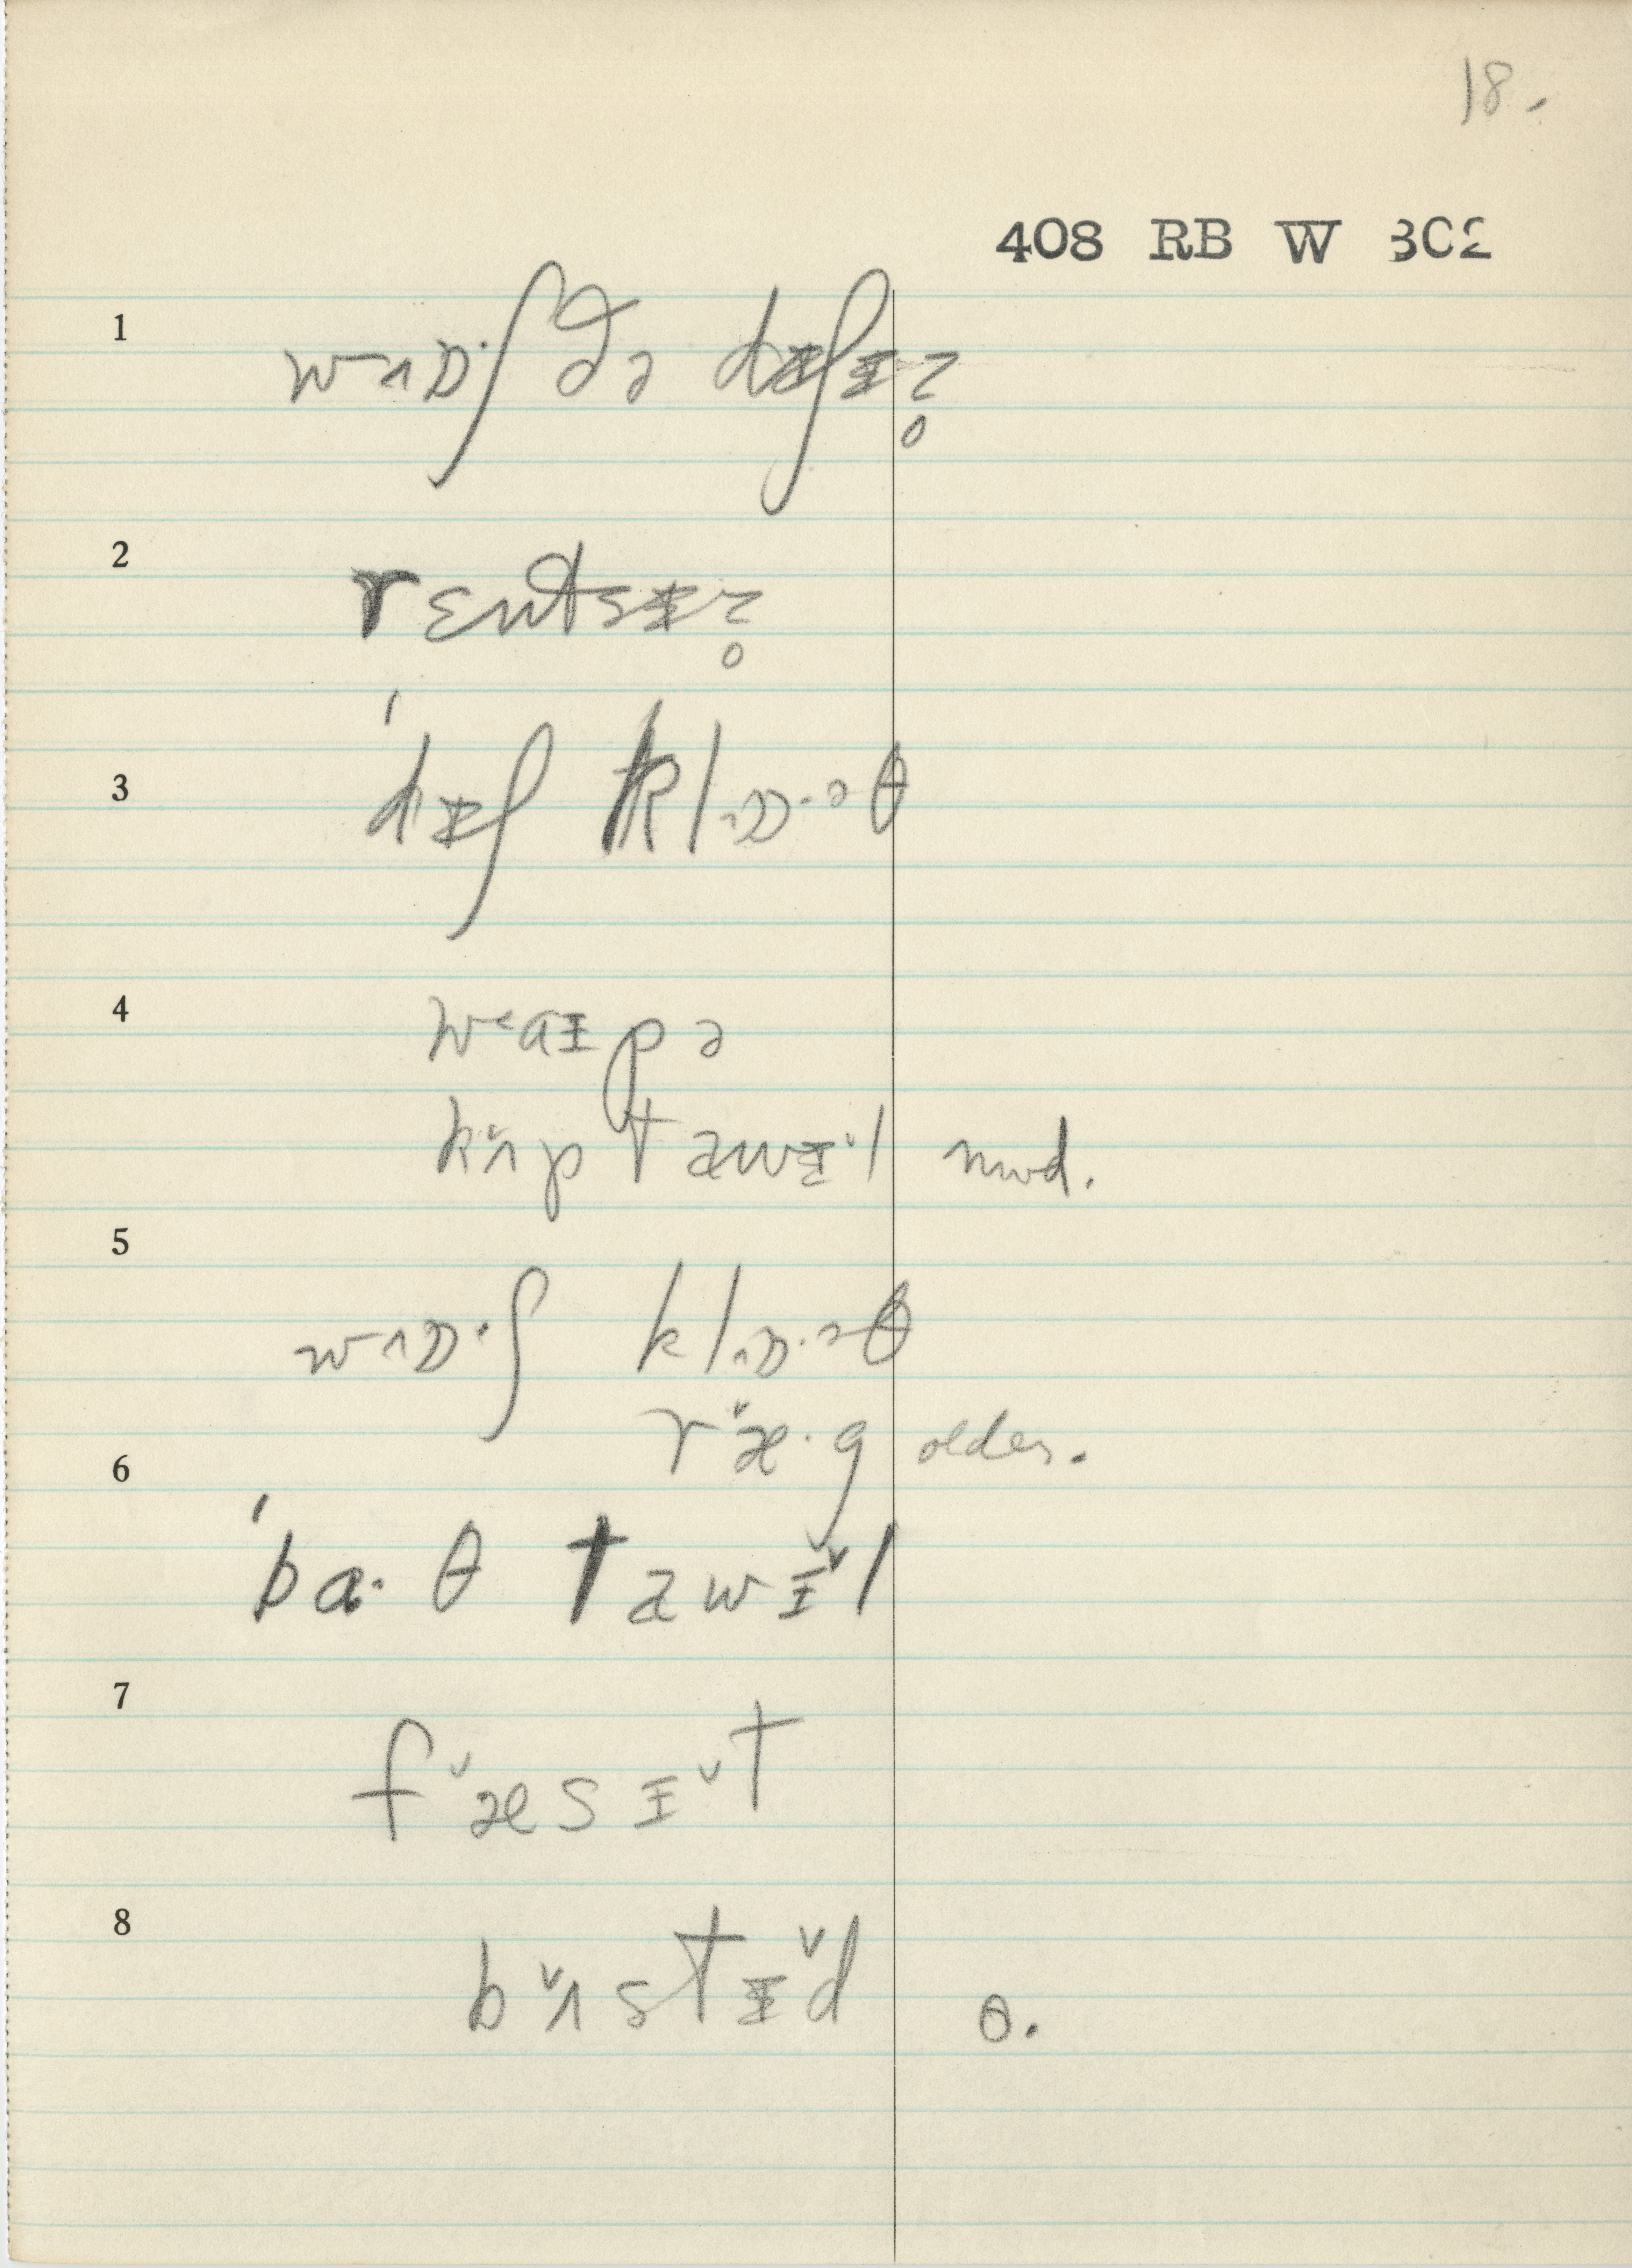 18.
408 RB W 302
1
wʌɒ·ʃ ðə dɪʃɪz̥
2
rɛntsɪz̥
3
ˈdɪʃ klɒ·əθ
4
waɪpə
kʌ̌p tawɪ̌l mod.
5
wʌɒ·ʃ klɒ·əθ
ræ̌·g older.
6
ˈba·θ tawɪ̌l
7
fæ̌sɪ̌t
8
bʌ̌stɪ̌d θ.